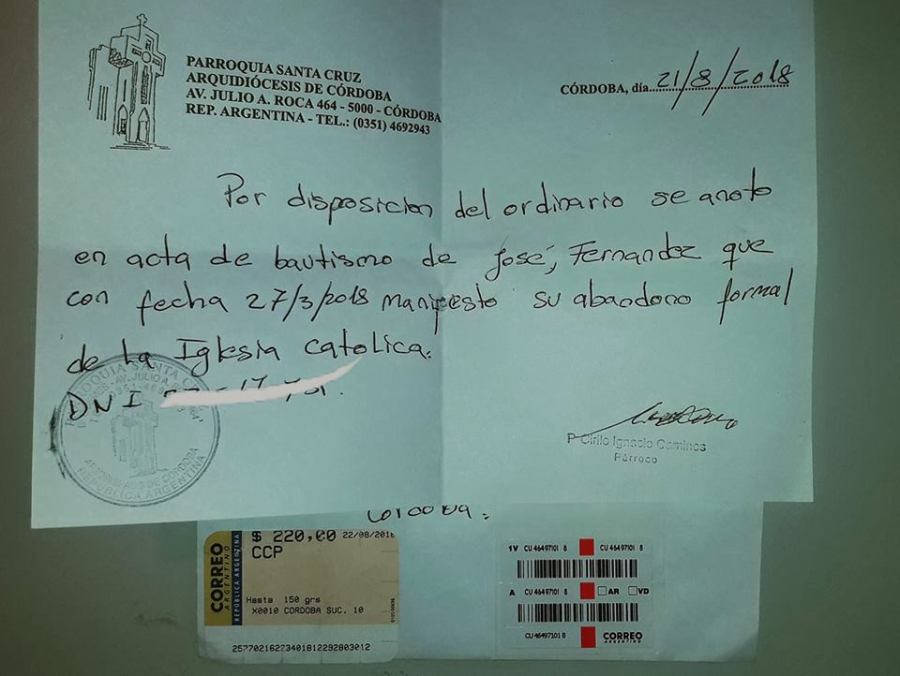 PARROQUIA SANTA CRUZ
ARQUIDIÓCESIS DE CÓRDOBA
AV. JULIO A. ROCA 464 - 5000 - CÓRDOBA
REP. ARGENTINA - TEL.: (0351) 4692943
CÓRDOBA, día 21/8/2018
Por disposicion del ordinario se anoto
en acta de bautismo de José, Fernandez que
con fecha 27/3/2018 manifesto su abandono formal
de la Iglesia catolica.
DNI
PARROQUIA SANTA CRUZ
AV. JULIO A.
ARQUIDIOCESIS DE CORDOBA
REPUBLICA ARGENTINA
P. Cirilo Ignacio Caminos
Párroco
Cordoba.
CORREO
ARGENTINO
REPÚBLICA ARGENTINA
$ 220,00 22/08/2018
CCP
Hasta 150 grs
X0010 CORDOBA SUC. 10
257702162273401812292803012
1V CU 46497101 8 CU 46497101 8
A CU 46497101 8 AR VD
CU 46497101 8 CORREO
ARGENTINO